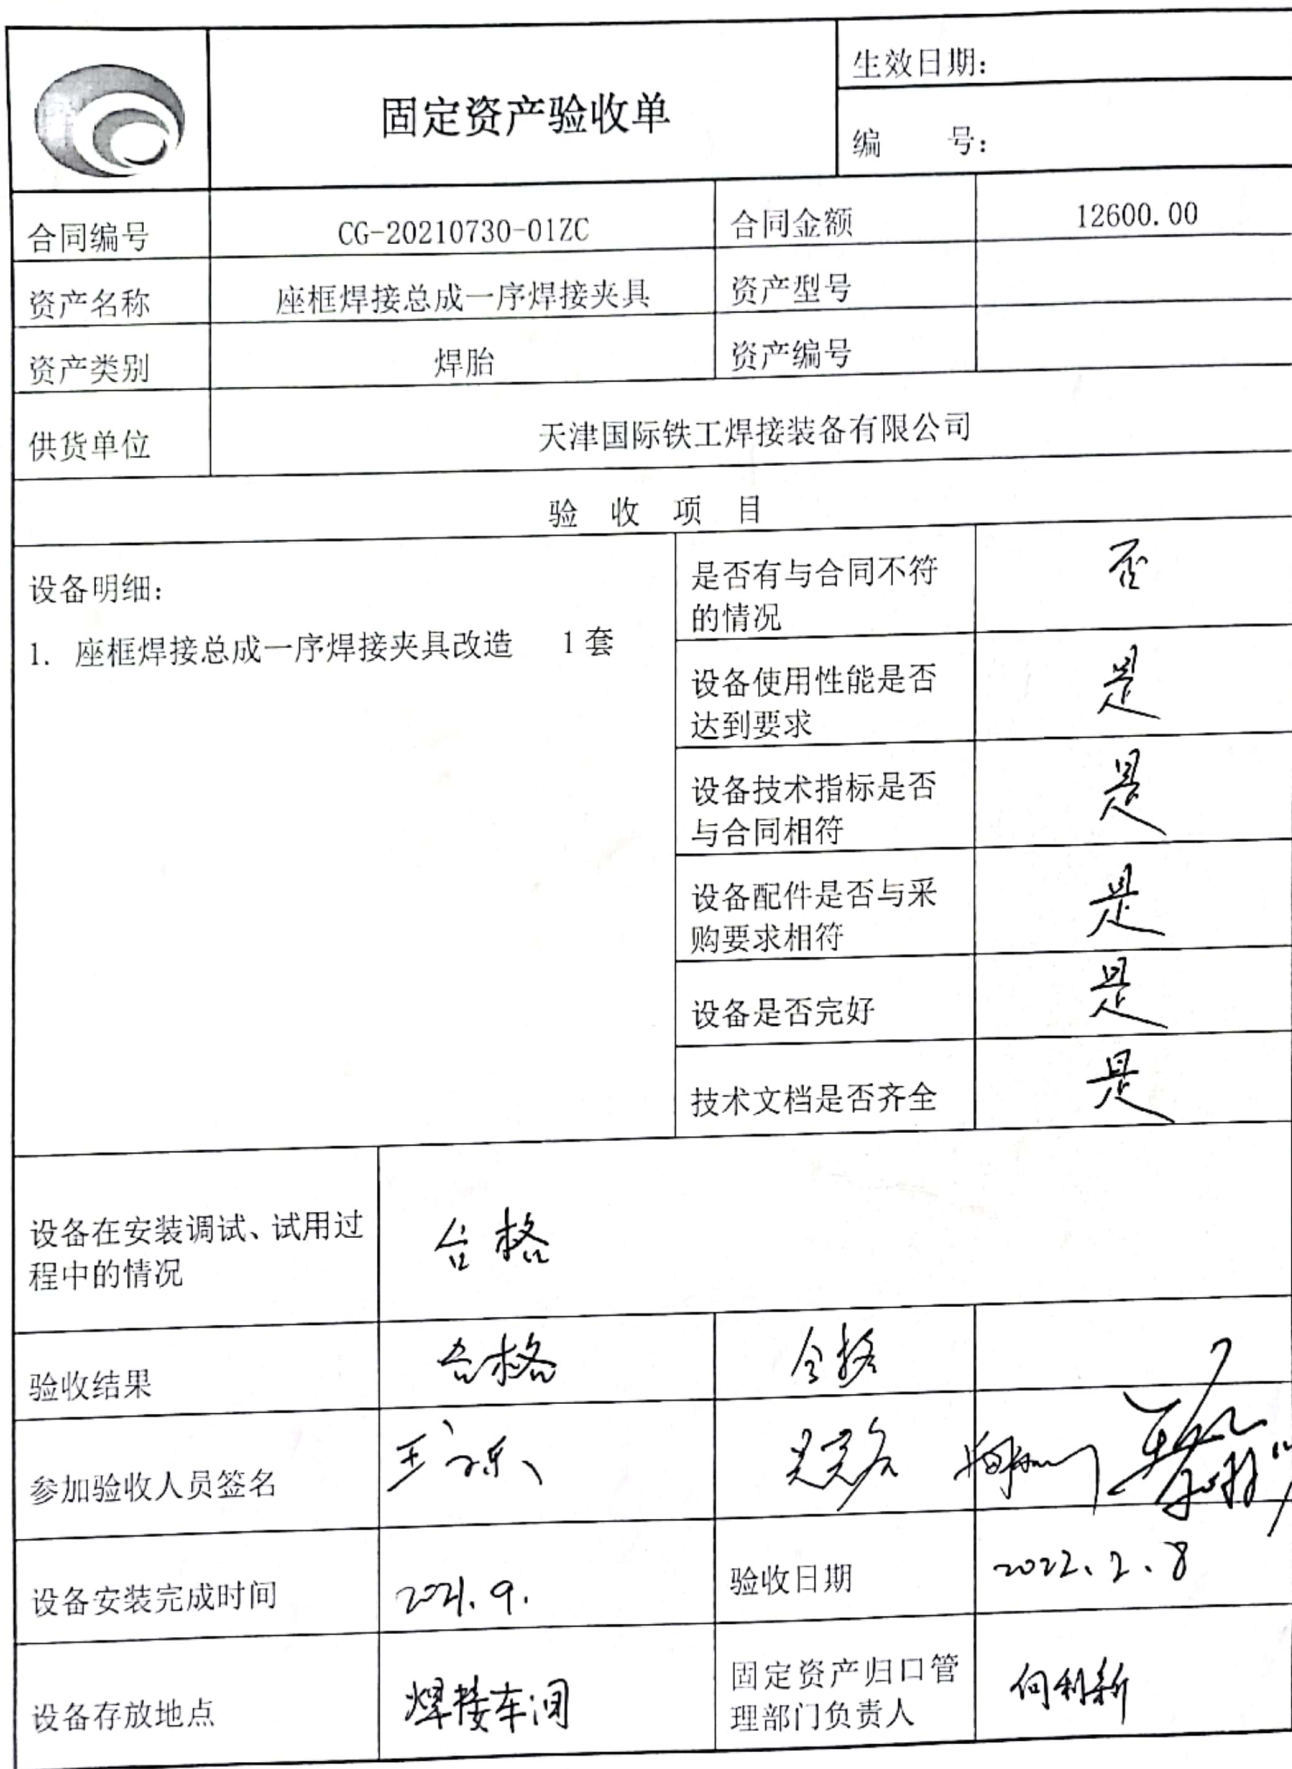 固定资产验收单
生效日期:
编 号:
合同编号 CG-20210730-01ZC 合同金额 12600.00
资产名称 座框焊接总成一序焊接夹具 资产型号
资产类别 焊胎 资产编号
供货单位 天津国际铁工焊接装备有限公司
验 收 项 目
设备明细:
1. 座框焊接总成一序焊接夹具改造 1套
是否有与合同不符
的情况
否
设备使用性能是否
达到要求
是
设备技术指标是否
与合同相符
是
设备配件是否与采
购要求相符
是
设备是否完好 是
技术文档是否齐全 是
设备在安装调试、试用过
程中的情况
合格
验收结果 合格 合格
参加验收人员签名
设备安装完成时间 2021.9. 验收日期 2022.2.8
设备存放地点 焊接车间
固定资产归口管
理部门负责人
何利新